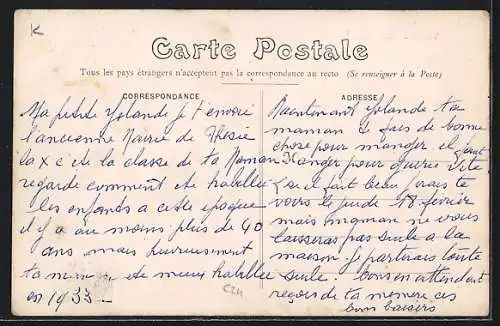 K
Carte Postale
Tous les pays étrangers n'acceptent pas la correspondance au recto (Se renseigner à la Poste)
CORRESPONDANCE
Ma petite Yolande je t'envoie
l'ancienne Mairie de Thesée
la X c'é la classe de ta Maman
regarde comment eté habillée
les enfants a cette epoque
il y a au moins plus de 40
ans mais heureusement
ta eté mieux habillée
en 1933 —
ADRESSE
Maintenant Yolande ta
maman te fais de bonne
chose pour manger il faut
manger pour guerire vite
s'il fait beau j'irais te
voire le jeudi 18 février
mais maman ne vous
laisseras pas seule a la
maison je partirais toute
seule. bon en attendant
reçois de ta memere ces
bons baisers